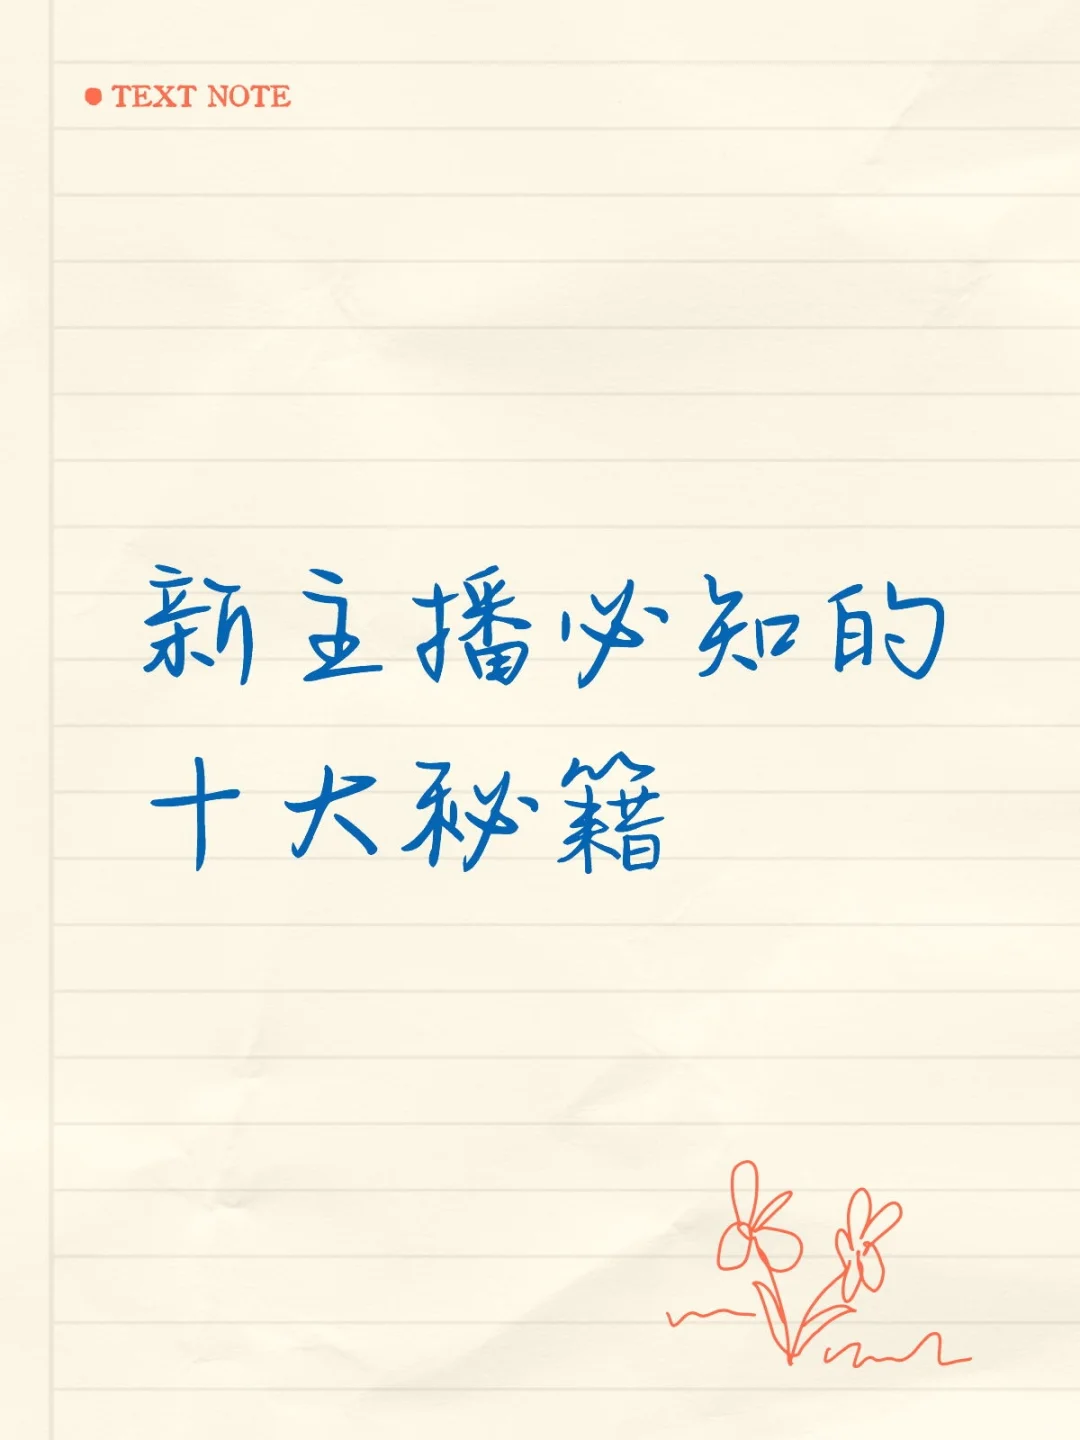 TEXT NOTE
新主播必知的
十大秘籍